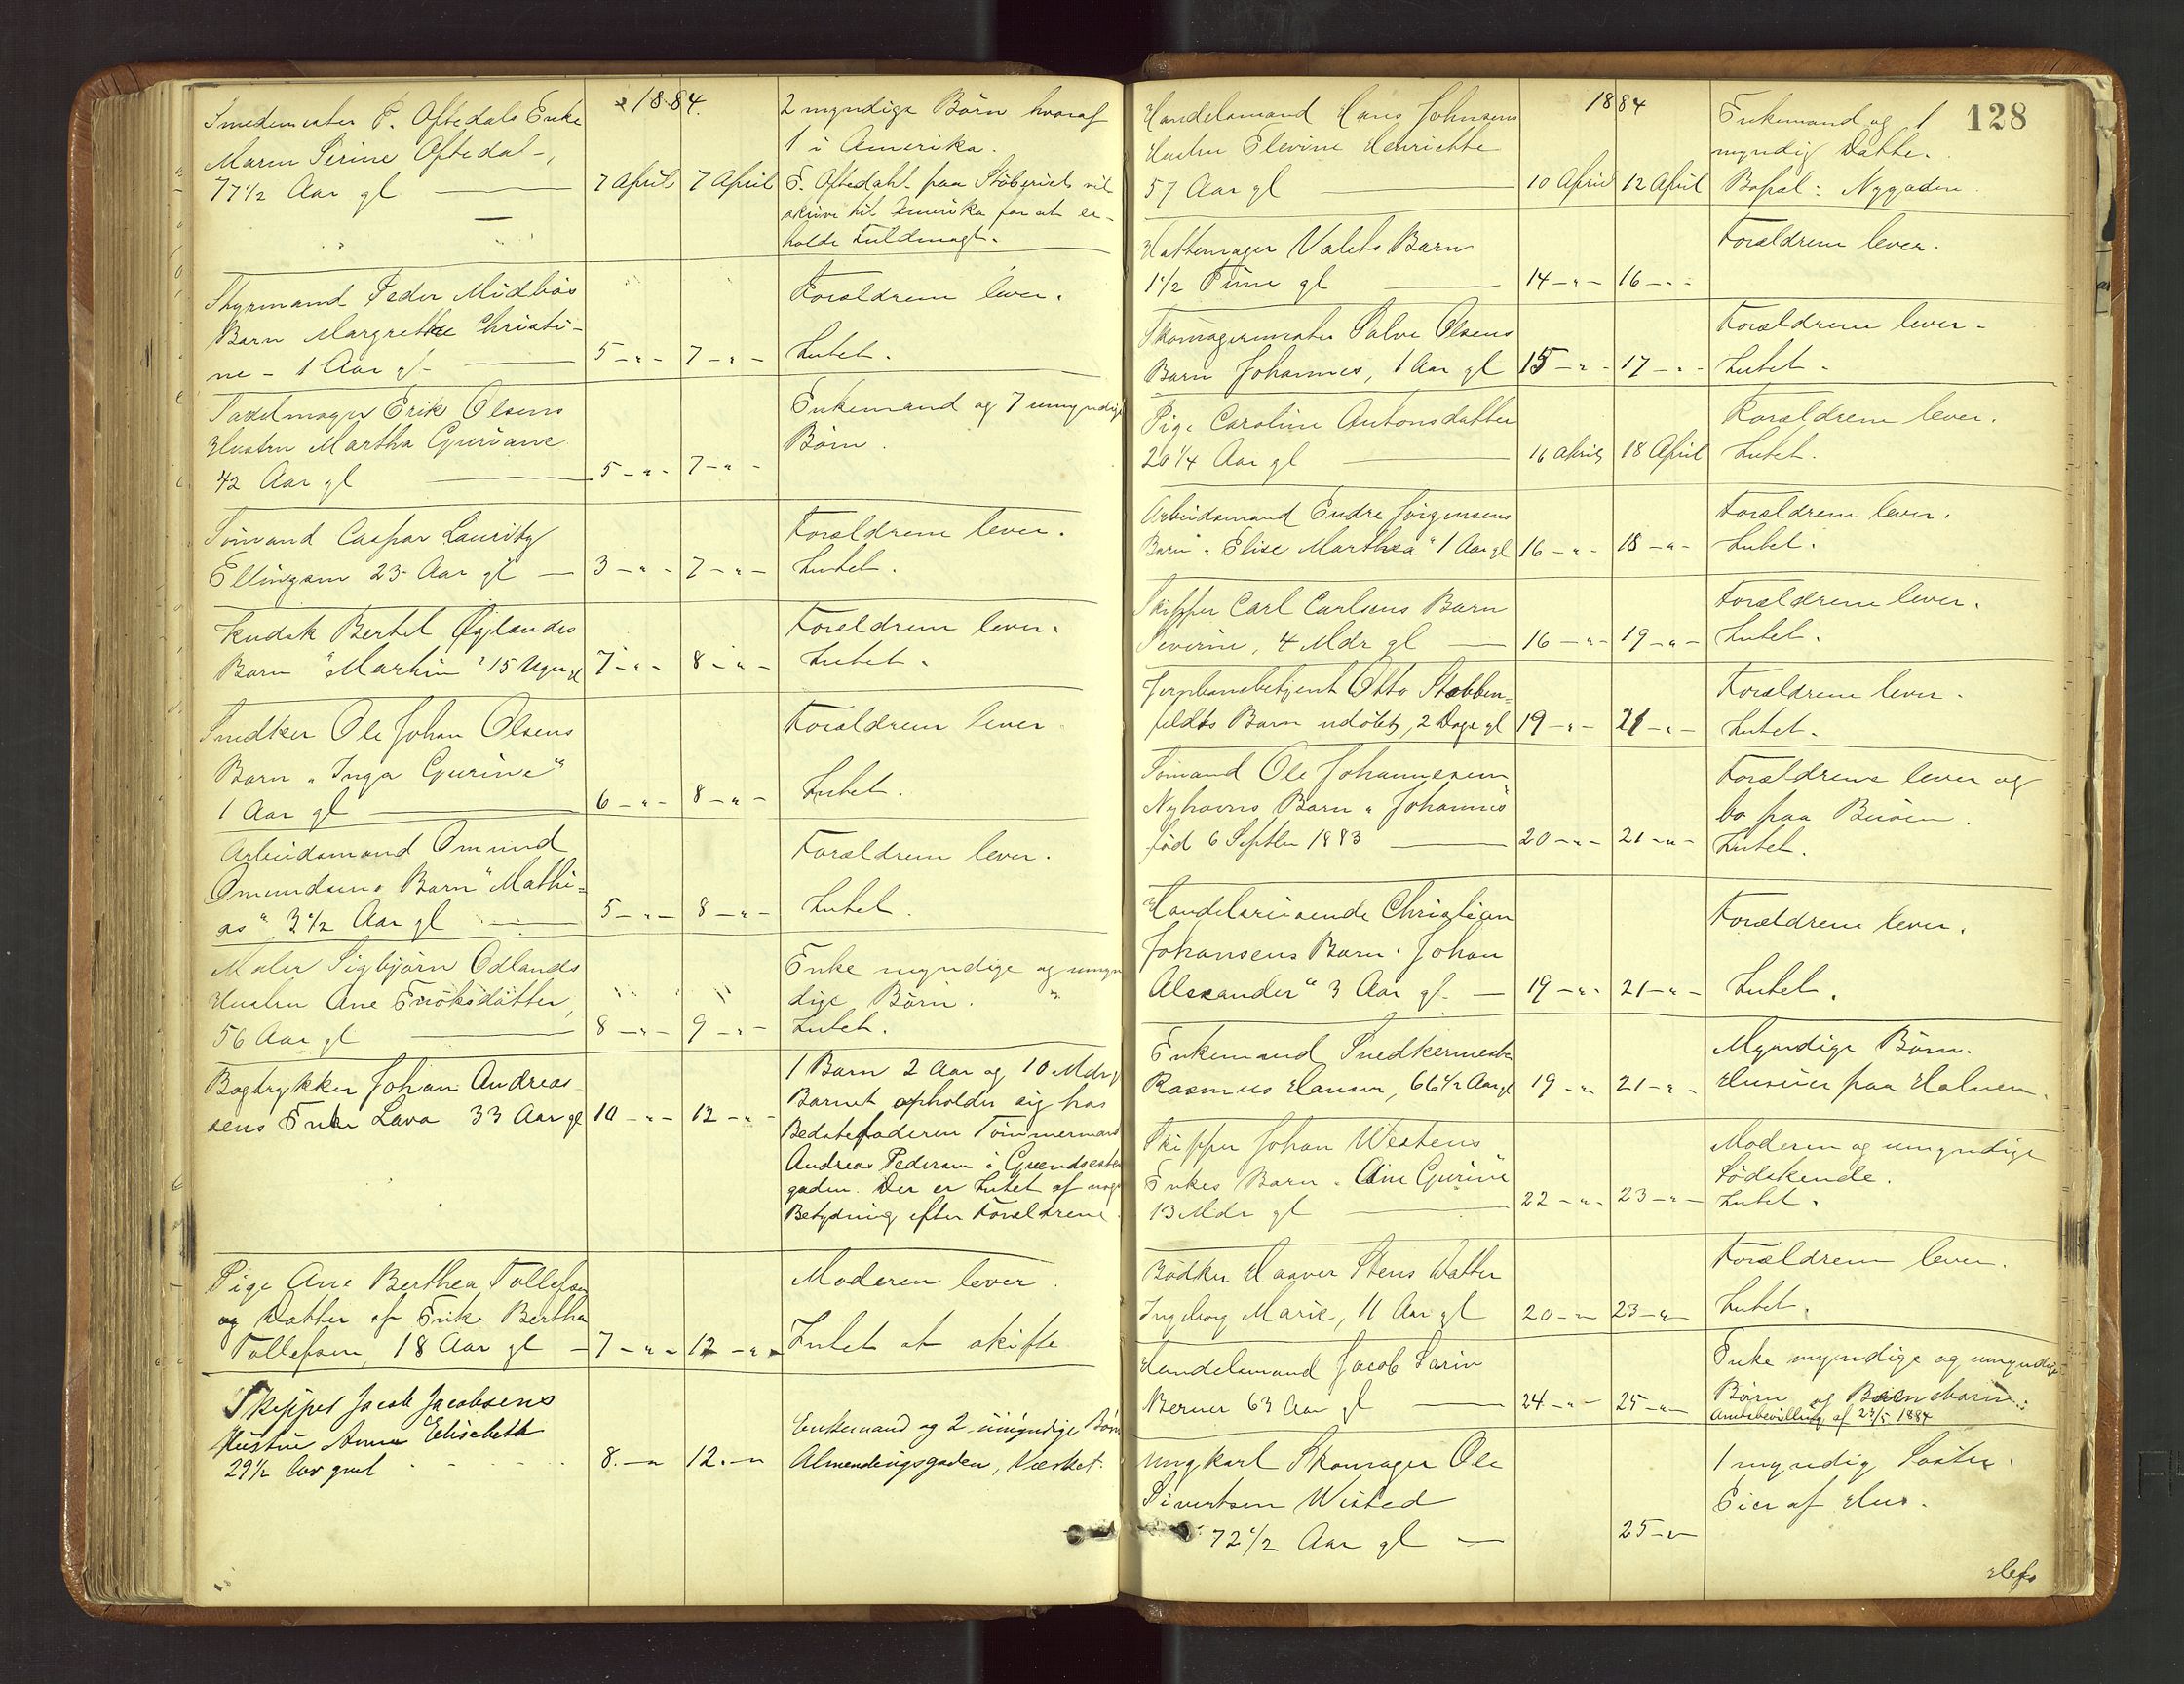 1884.
Smedemester P. Oftedals Enke
Maren Serine Oftedal -,
77 1/2 Aar gl — 7 April 7 April
2 myndige Börn hvoraf
1 i Amerika.
E. Oftedahl paa Stöberiet vil
skrive til Amerika for at er-
holde Fuldmagt.
Styrmand Peder Midbøs
Barn Margrethe Christi-
ne - 1 Aar gl - 5 - " - 7 - " -
Forældrene lever.
Intet.
Sadelmager Erik Olsens
Hustru Martha Guriane
42 Aar gl — 5 - " - 7 - " -
Enkemand og 7 umyndige
Börn.
Sömand Caspar Lauritz
Ellingsen 23 Aar gl — 3 - " - 7 - " -
Forældrene lever.
Intet.
Kudsk Bertel Øglændes
Barn "Martin" 15 Uger gl 7 - " - 8 - " -
Forældrene lever.
Intet.
Snedker Ole Johan Olsens
Barn "Inga Gurine"
1 Aar gl — 6 - " - 8 - " -
Forældrene lever
Intet.
Arbeidsmand Omund
Omundsens Barn "Mathi=
as" 3 1/2 Aar gl — 5 - " - 8 - " -
Forældrene lever.
Intet.
Maler Sigbjörn Odlands
Hustru Ane Enöksdatter,
56 Aar gl — 8 - " - 9 - " -
Enke myndige og umyn
dige Börn.
Intet.
Bogtrykker Johan Andreas
sens Enke Lava 33 Aar gl 10 - " - 12 - " -
1 Barn 2 Aar og 10 Mdr g
Barnet opholder sig hos
Bedstefaderen Tömmermand
Andreas Pedersen i
gaden. Der er Intet af nogen
Betydning efter Forældrene.
Pige Ane Berthea Tollefsen
og Datter af Enke Bertha
Tollefsen, 18 Aar gl - 7 - " - 12 - " -
Moderen lever.
Intet at skifte
Skipper Jacob Jacobsens
Hustru Anna Elisabeth
29 1/2 Aar gml 8. - " 12. - "
Enkemand og 2 umyndige Börn
Almendingsgaden, Værket.
128
1884
Handelsmand Hans Johnsens
Hustru Elevine Henriette
57 Aar gl — 10 April 12 April
Enkemand og 1
myndig Datter.
Bopæl: Nygaden.
Hattemager Valets Barn
1 1/2 Time gl — 14 - " - 16 - " -
Forældrene lever.
Skomagermester Salve Olsens
Barn Johannes, 1 Aar gl 15 - " - 17 - " -
Forældrene lever -
Intet.
Pige Caroline Antonsdatter
20 1/4 Aar gl — 16 April 18 April
Forældrene lever.
Intet.
Arbeidsmand Endre Jörgensens
Barn "Elise Marthea" 1 Aar gl 16 - " - 18 - " -
Forældrene lever.
Intet.
Skipper Carl Carlsens Barn
Severine, 4 Mdr gl — 16 - " - 19 - " -
Forældrene lever.
Intet.
Jernbanebetjent Otto Stabben-
feldts Barn udöbt, 2 Dage gl 19 - " - 21 - " -
Forældrene lever.
Intet.
Sömand Ole Johannesen
Nyhavns Barn "Johannes"
föd 6 Septbr 1883 — 20 - " - 21 - " -
Forældrene lever og
bo paa Buöen.
Intet.
Handelsreisende Christian
Johansens Barn "Johan
Alexander" 3 Aar gl. — 19 - " - 21 - " -
Forældrene lever.
Intet.
Enkemand Snedkermester
Rasmus Hansen, 66 1/2 Aar gl 19 - " 21 - " -
Myndige Börn.
Huseier paa Holmen.
Skipper Johan Westens
Enkes Barn "Ane Gurine"
13 Mdr gl — 22 - " - 23 - " -
Moderen og umyndige
Södskende.
Intet.
Bödker Haaver Stens Datter
Ingeborg Marie, 11 Aar gl 20 - " 23 - " -
Forældrene lever.
Intet.
Handelsmand Jacob Sarin
Berner 63 Aar gl — 24 - " - 25 - " -
Enke myndige og umyndige
Börn og Barnebarn.
Amtsbevilling af 23/5 1884
Ungkarl Skomager Ole
Sivertsen Wisted
72 1/2 Aar gl — 25 - " -
1 myndig Söster.
Eier af Hus.